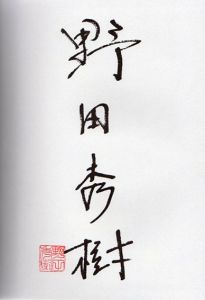 野田秀樹